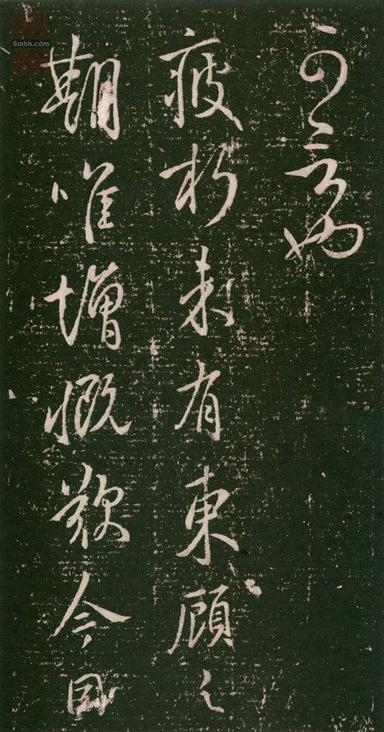 可言也
疲朽未有東顧之
期唯增慨歎今因
8mhh.com